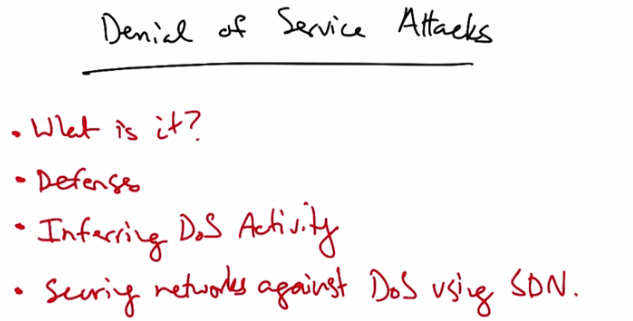 Denial of Service Attacks
• What is it?
• Defenses
• Inferring DoS Activity
• Securing networks against DoS using SDN.